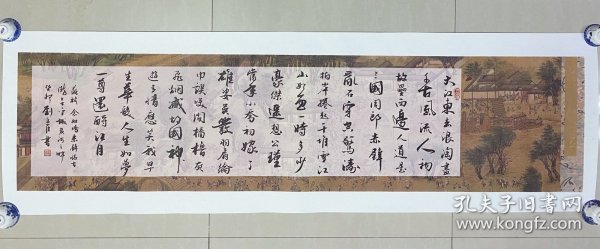 大江東去浪淘盡
千古風流人物
故壘西邊人道是
三國周郎赤壁
亂石穿空驚濤
拍岸捲起千堆雪江
山如畫一時多少
豪傑遙想公瑾
當年小喬初嫁了
雄姿英發羽扇綸
巾談笑間檣櫓灰
飛烟滅故國神
遊多情應笑我早
生華髮人生如夢
一尊還酹江月
蘇軾念奴嬌赤壁懷古
癸卯劉書
孔夫子旧书网
www.kongfz.com